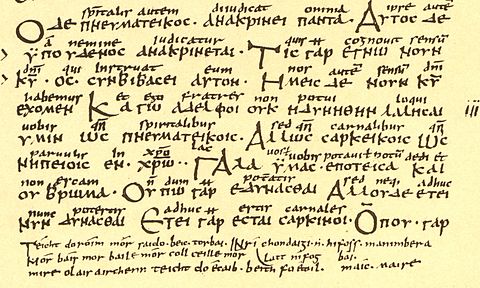 spitalis autem diiudicat omnia ipse autē
Ο δε πνευματεικος· ανακρινει παντα· Αυτος δε
a nemine iudicatur quis cognouit sensū
ὑπουδενος ανακρινεται· Τις γαρ εγνω νουν
dn̄i qui instruat eum nos autē sensū dn̄i
κ̄υ· ος συνβιβασει αυτον· Ημεις δε νουν κ̄υ
habemus et ego fratres non potui loqui
εχομεν Καγω αδελφοι ουκ ηδυνηθην λαλησαι
uobis qsī spiritalibus sed qsī carnalibus qsī
υμιν ως πνευματεικοις· Αλλως σαρκεικοις ως
paruulis in xp̄o lac uobis potaui dedi et
νηπειοις εν χρ̄ω·· Γαλα υμας εποτεισα και
non escam n̄ dum potestis sed neq adhuc
ου βρωμα· Ουπω γαρ εδυνασθαι Αλλουδε ετει
nunc potestis adhuc estis carnales
νυν δυνασθαι Ετει γαρ εσται σαρκινοι· Οπου·γαρ
Teicht doróim mór saido· becc torbai· INrí chondaigi·n·hifoss· manimbera
latt nífog bai·
Mór báis mor baile mór coll ceille mór
mire olais airchenn teicht do écaib· beith fo étoil· maic· maire